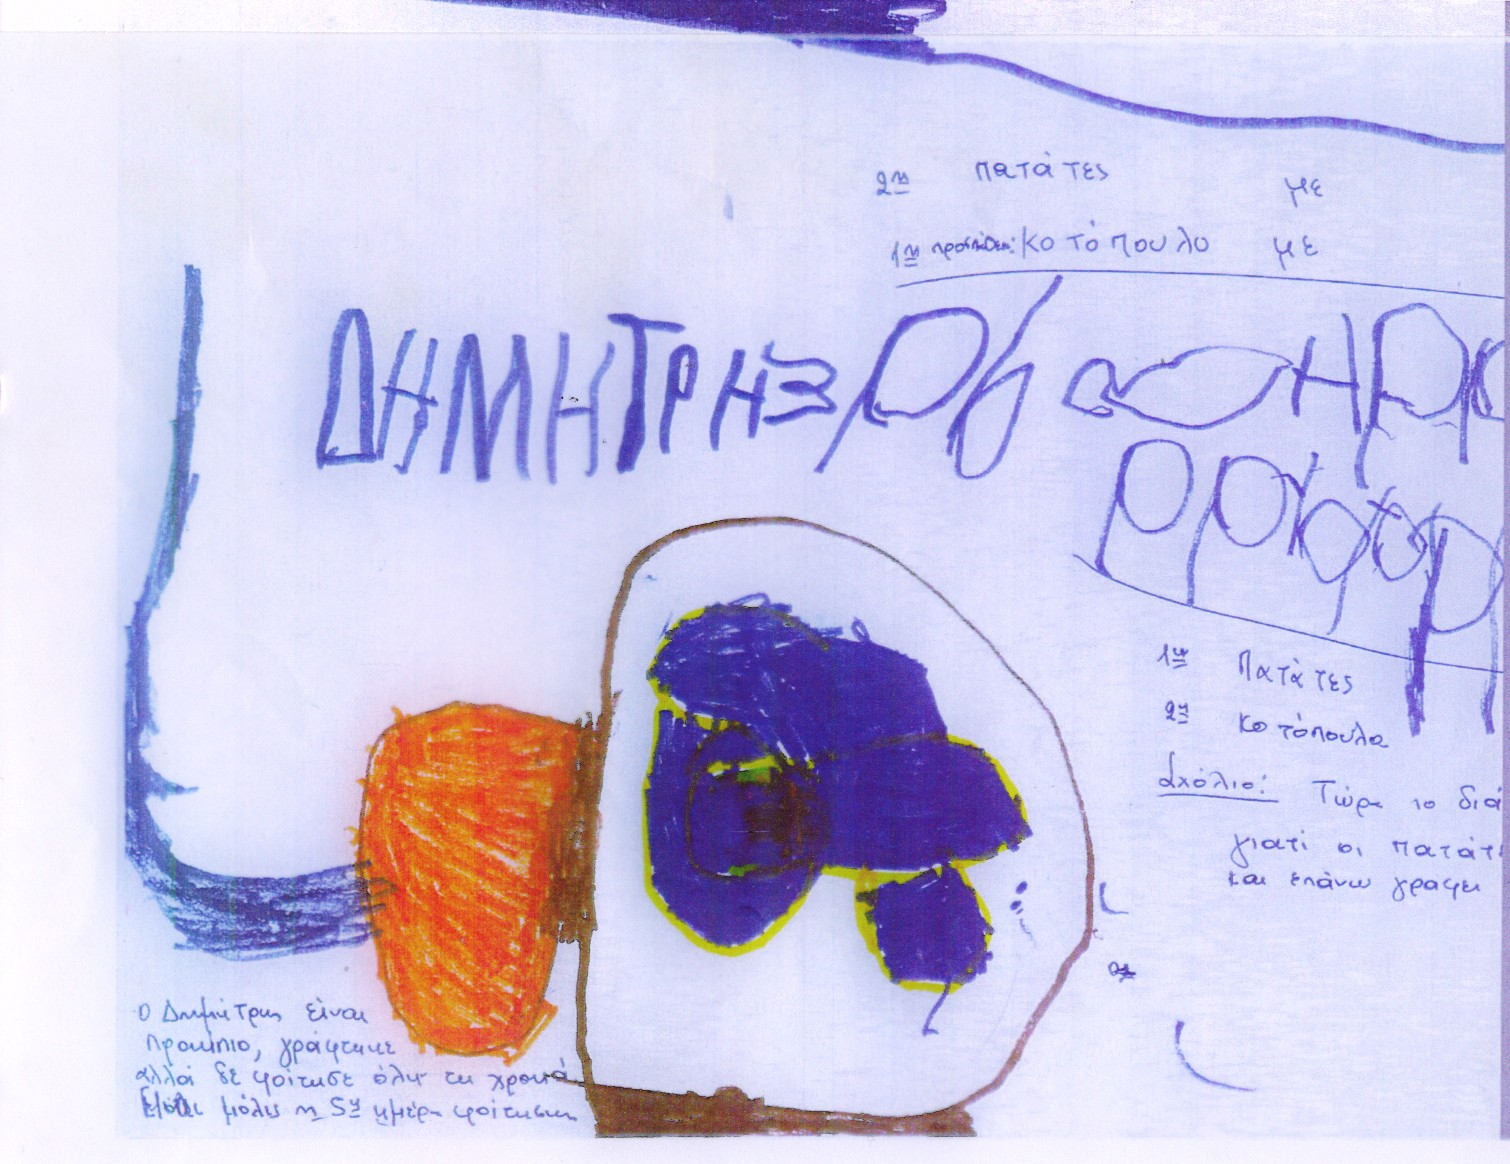 2η πατάτες με
1η προσπάθεια: κοτόπουλο με
ΔΗΜΗΤΡΗΣ
1η Πατάτες
2η κοτόπουλο
Σχόλιο: Τώρα το διά
γιατί οι πατάτ
και επάνω γράφει
Ο Δημήτρης είναι
προνήπιο, γράφτηκε
αλλά δε φοίτησε όλη τη χρονιά.
Είναι μόλις η 5η ημέρα φοίτησης